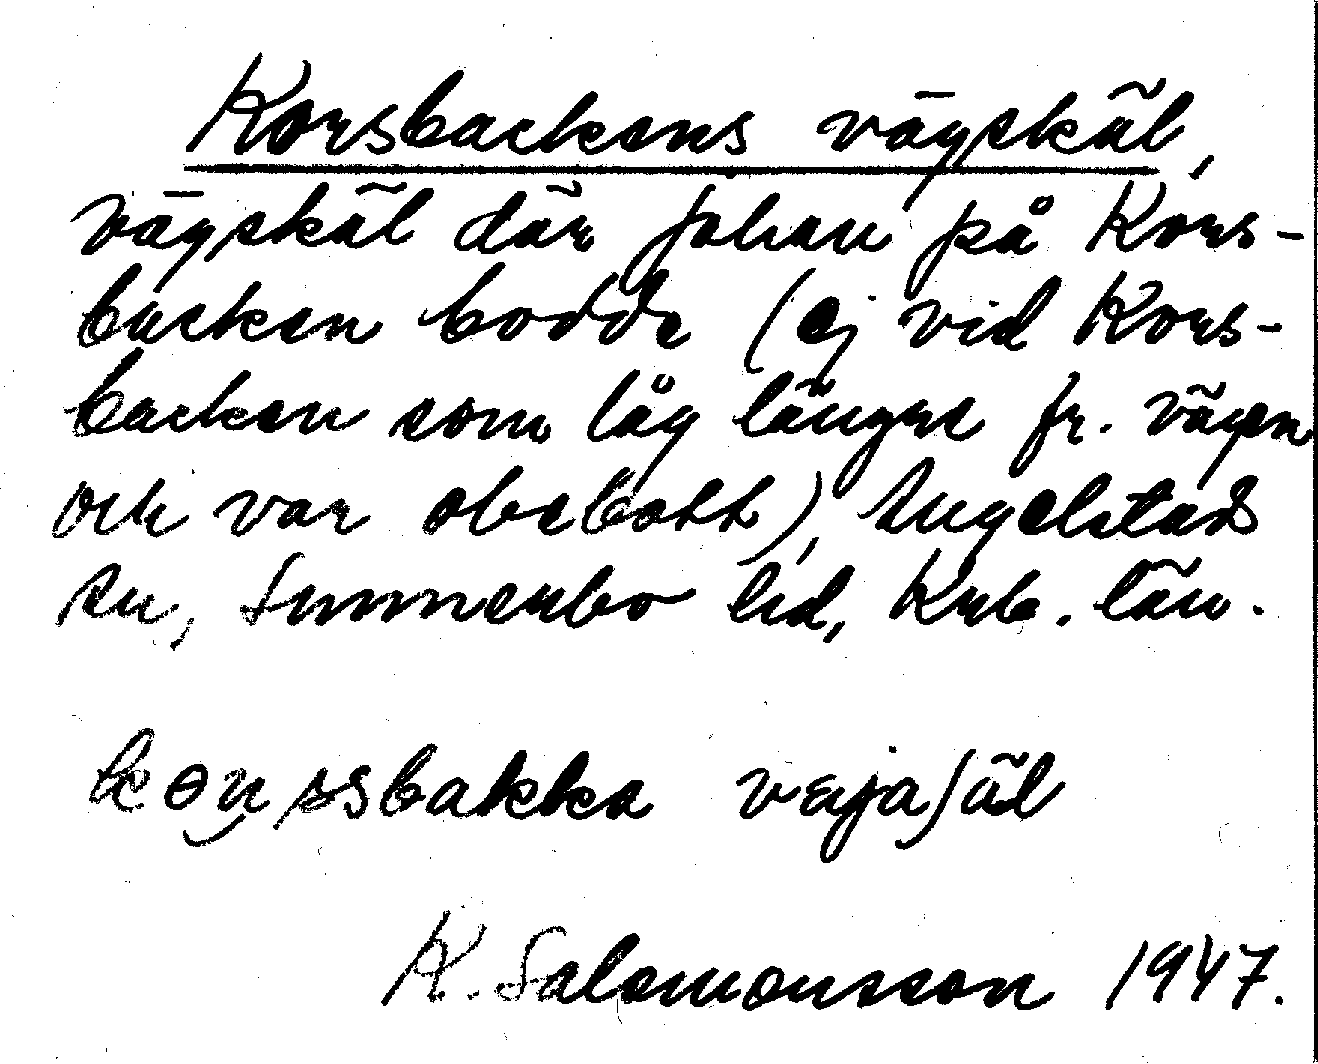 Korsbackens vägskäl,
vägskäl där Johan på Kors-
backen bodde (ej vid Kors-
backen som låg längre fr. vägen
och var obebott), Angelstads
sn, Sunnerbo hd, Krb. län.
korssbakka vejaʃäl
K. Salomonsson 1947.